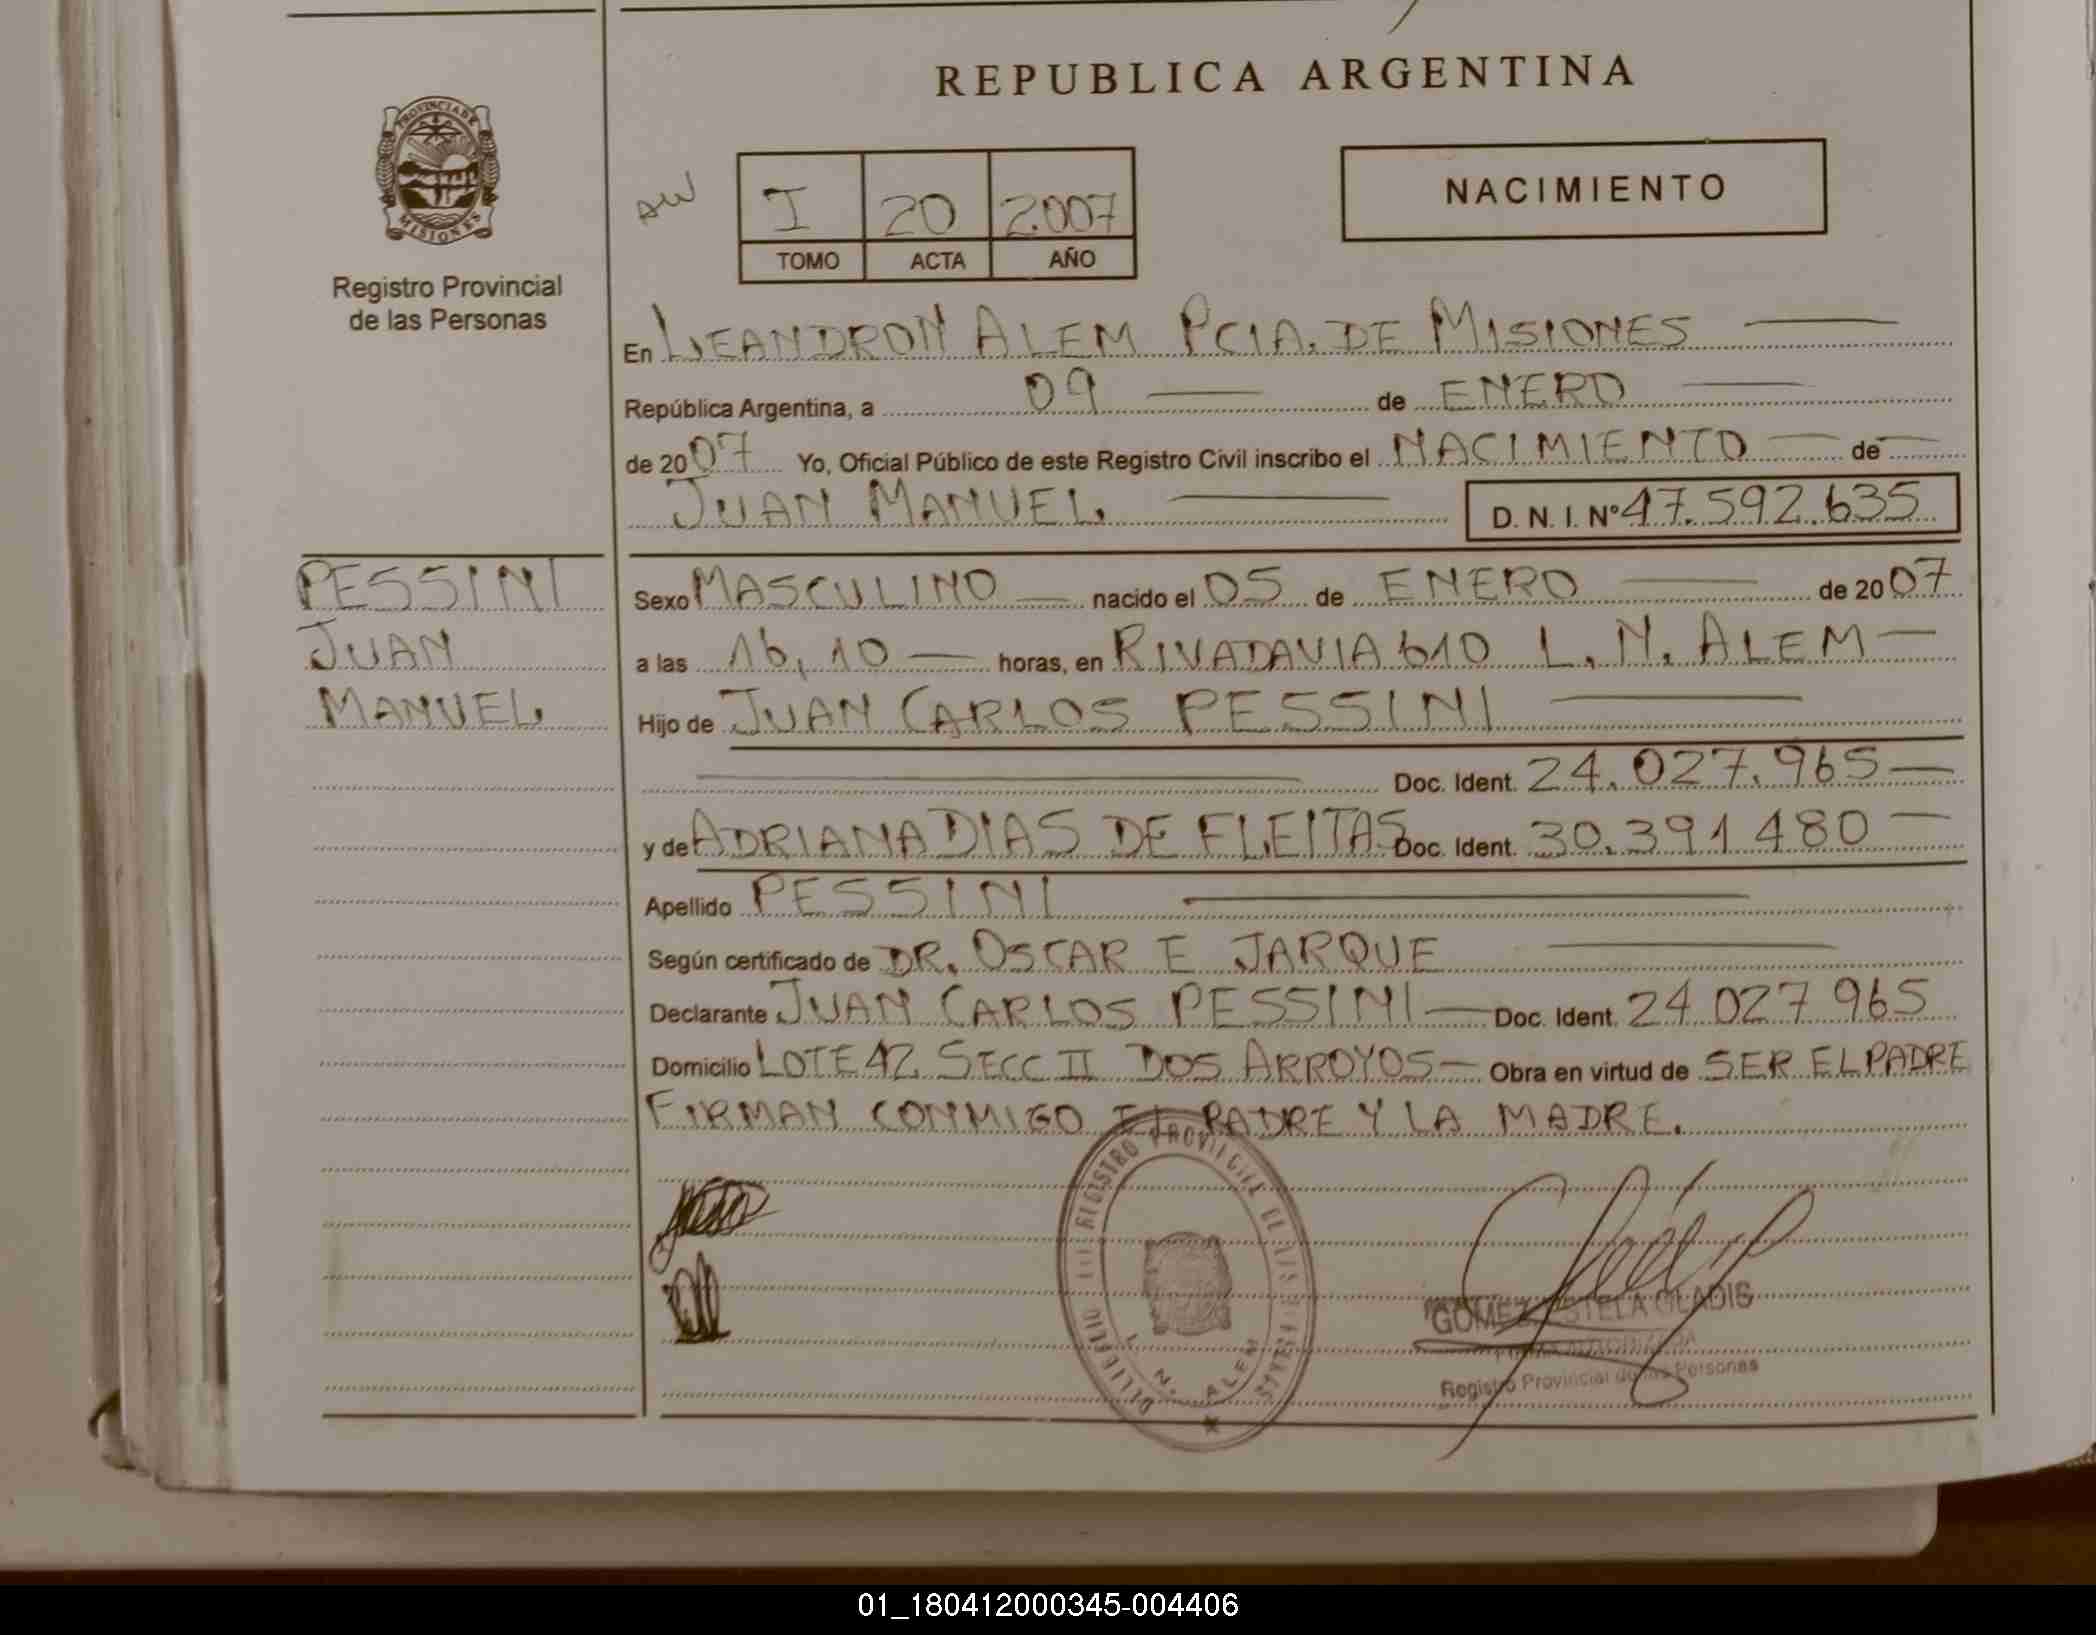 REPUBLICA ARGENTINA
PROVINCIA DE
MISIONES
Registro Provincial
de las Personas
I 20 2.007
TOMO ACTA AÑO
NACIMIENTO
En LEANDRO N ALEM PCIA. DE MISIONES
República Argentina, a 09 de ENERO
de 2007 Yo, Oficial Público de este Registro Civil inscribo el NACIMIENTO de
JUAN MANUEL. D. N. I. Nº 47.592.635
PESSINI
JUAN
MANUEL.
Sexo MASCULINO nacido el 05 de ENERO de 2007
a las 16,10 horas, en RIVADAVIA 610 L. N. ALEM
Hijo de JUAN CARLOS PESSINI
Doc. Ident. 24.027.965
y de ADRIANA DIAS DE FLEITAS Doc. Ident. 30.391 480
Apellido PESSINI
Según certificado de DR. OSCAR E JARQUE
Declarante JUAN CARLOS PESSINI Doc. Ident. 24 027 965
Domicilio LOTE 42 SECC II DOS ARROYOS Obra en virtud de SER EL PADRE
FIRMAN CONMIGO EL PADRE Y LA MADRE.
REGISTRO PROVINCIAL DE LAS PERSONAS
L. N. ALEM
GOMEZ ESTELA GLADIS
FIRMA AUTORIZADA
Registro Provincial de las Personas
01_180412000345-004406